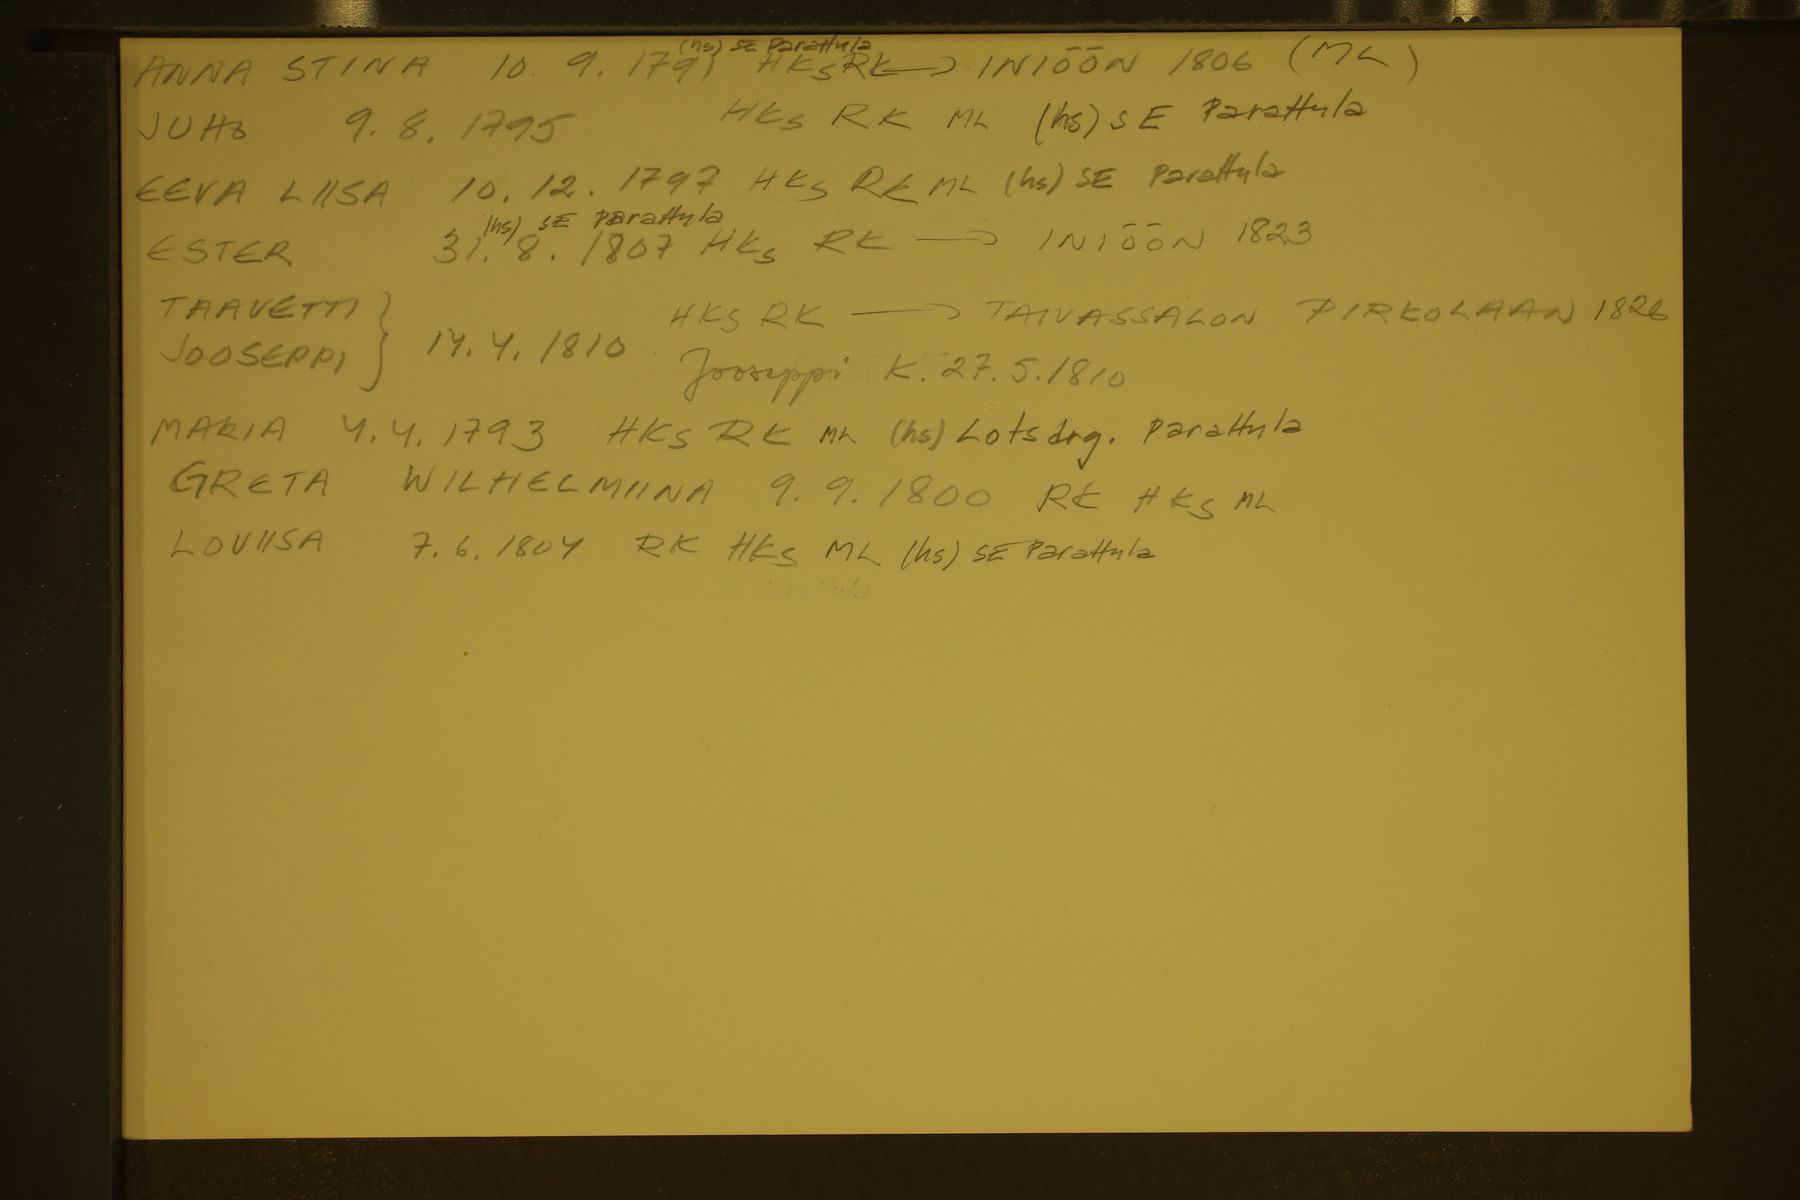 (hs) SE Parattula
ANNA STINA 10. 9. 1791 HKS RK → INIÖÖN 1806 (ML)
JUHO 9. 8. 1795 HKS RK ML (hs) SE Parattula
EEVA LIISA 10. 12. 1797 HKS RK ML (hs) SE Parattula
(hs) SE Parattula
ESTER 31. 8. 1807 HKS RK → INIÖÖN 1823
TAAVETTI HKS RK → TAIVASSALON PIRKOLAAN 1826
JOOSEPPI } 14. 4. 1810 Jooseppi K. 27. 5. 1810
MARIA 4. 4. 1793 HKS RK ML (hs) Lotsdrg. Parattula
GRETA WILHELMIINA 9. 9. 1800 RK HKS ML
LOVIISA 7. 6. 1804 RK HKS ML (hs) SE Parattula